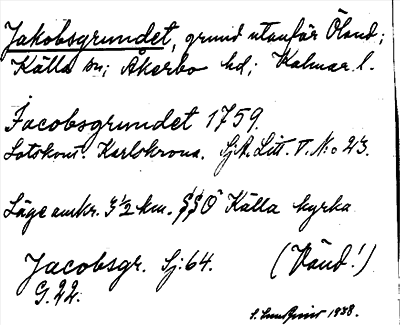 Jakobsgrundet, grund utanför Öland;
Källa sn; Åkerbo hd; Kalmar l.
Jacobsgrundet 1759.
Lotskont. Karlskrona. Sj.A. Litt. V. N:o 23.
Läge omkr. 3½ km. SSO Källa kyrka
Jacobsgr. Sj: 64. (Vänd!)
G. 22.
1938.